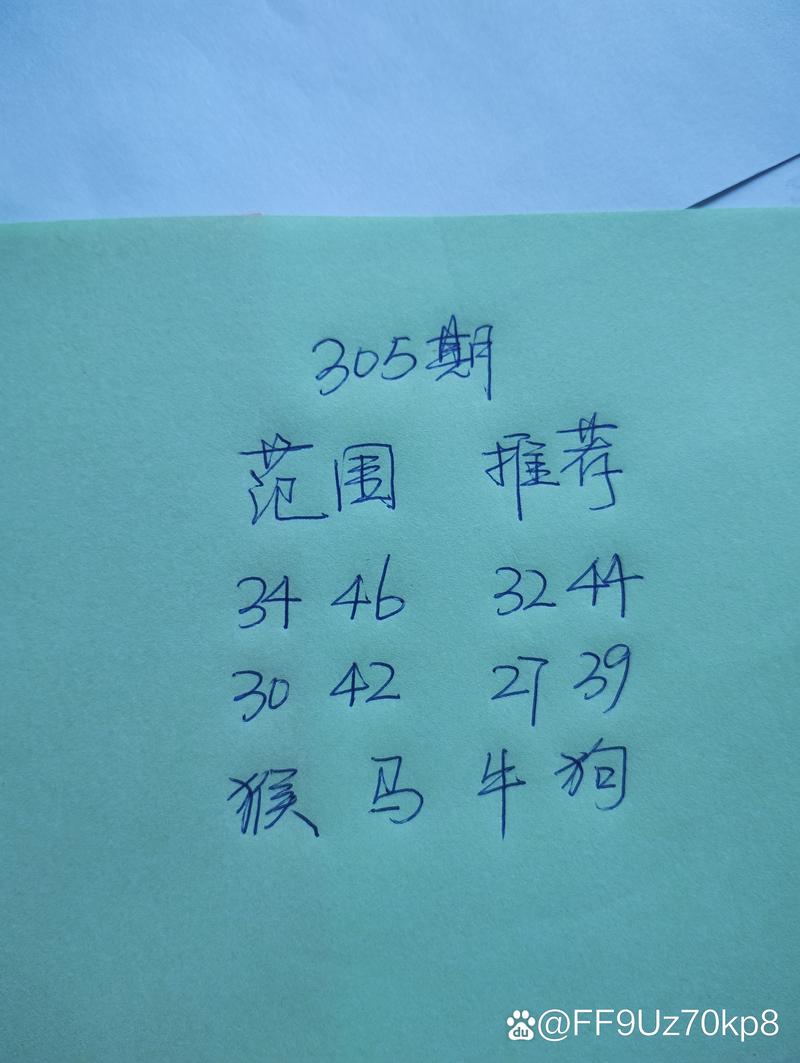 305期
范围 推荐
34 46 32 44
30 42 27 39
猴 马 牛 狗
du @FF9Uz70kp8